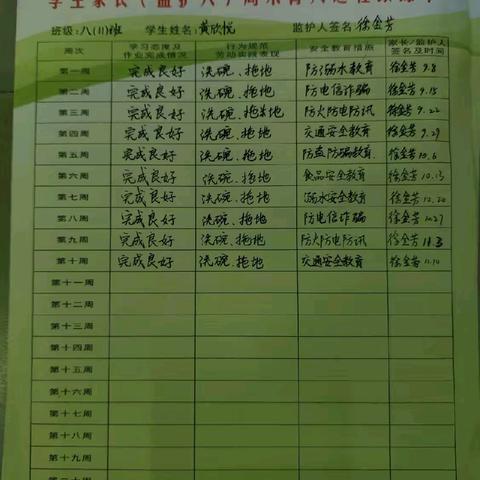 班级:八(11)班 学生姓名:黄欣悦 监护人签名:徐金芳
周次 学习态度及作业完成情况 行为规范劳动实践表现 安全教育措施 家长/监护人签名及时间
第一周 完成良好 洗碗、拖地 防溺水教育 徐金芳 9.8
第二周 完成良好 洗碗、拖地 防电信诈骗 徐金芳 9.15
第三周 完成良好 洗碗、拖地 防火防电防汛 徐金芳 9.22
第四周 完成良好 洗碗、拖地 交通安全教育 徐金芳 9.29
第五周 完成良好 洗碗、拖地 防盗防骗教育 徐金芳 10.6
第六周 完成良好 洗碗、拖地 食品安全教育 徐金芳 10.13
第七周 完成良好 洗碗、拖地 溺水安全教育 徐金芳
第八周 完成良好 洗碗、拖地 防电信诈骗 徐金芳 10.27
第九周 完成良好 洗碗、拖地 防火防电防汛 徐金芳 11.3
第十周 完成良好 洗碗、拖地 交通安全教育 徐金芳 11.10
第十一周
第十二周
第十三周
第十四周
第十五周
第十六周
第十七周
第十八周
第十九周